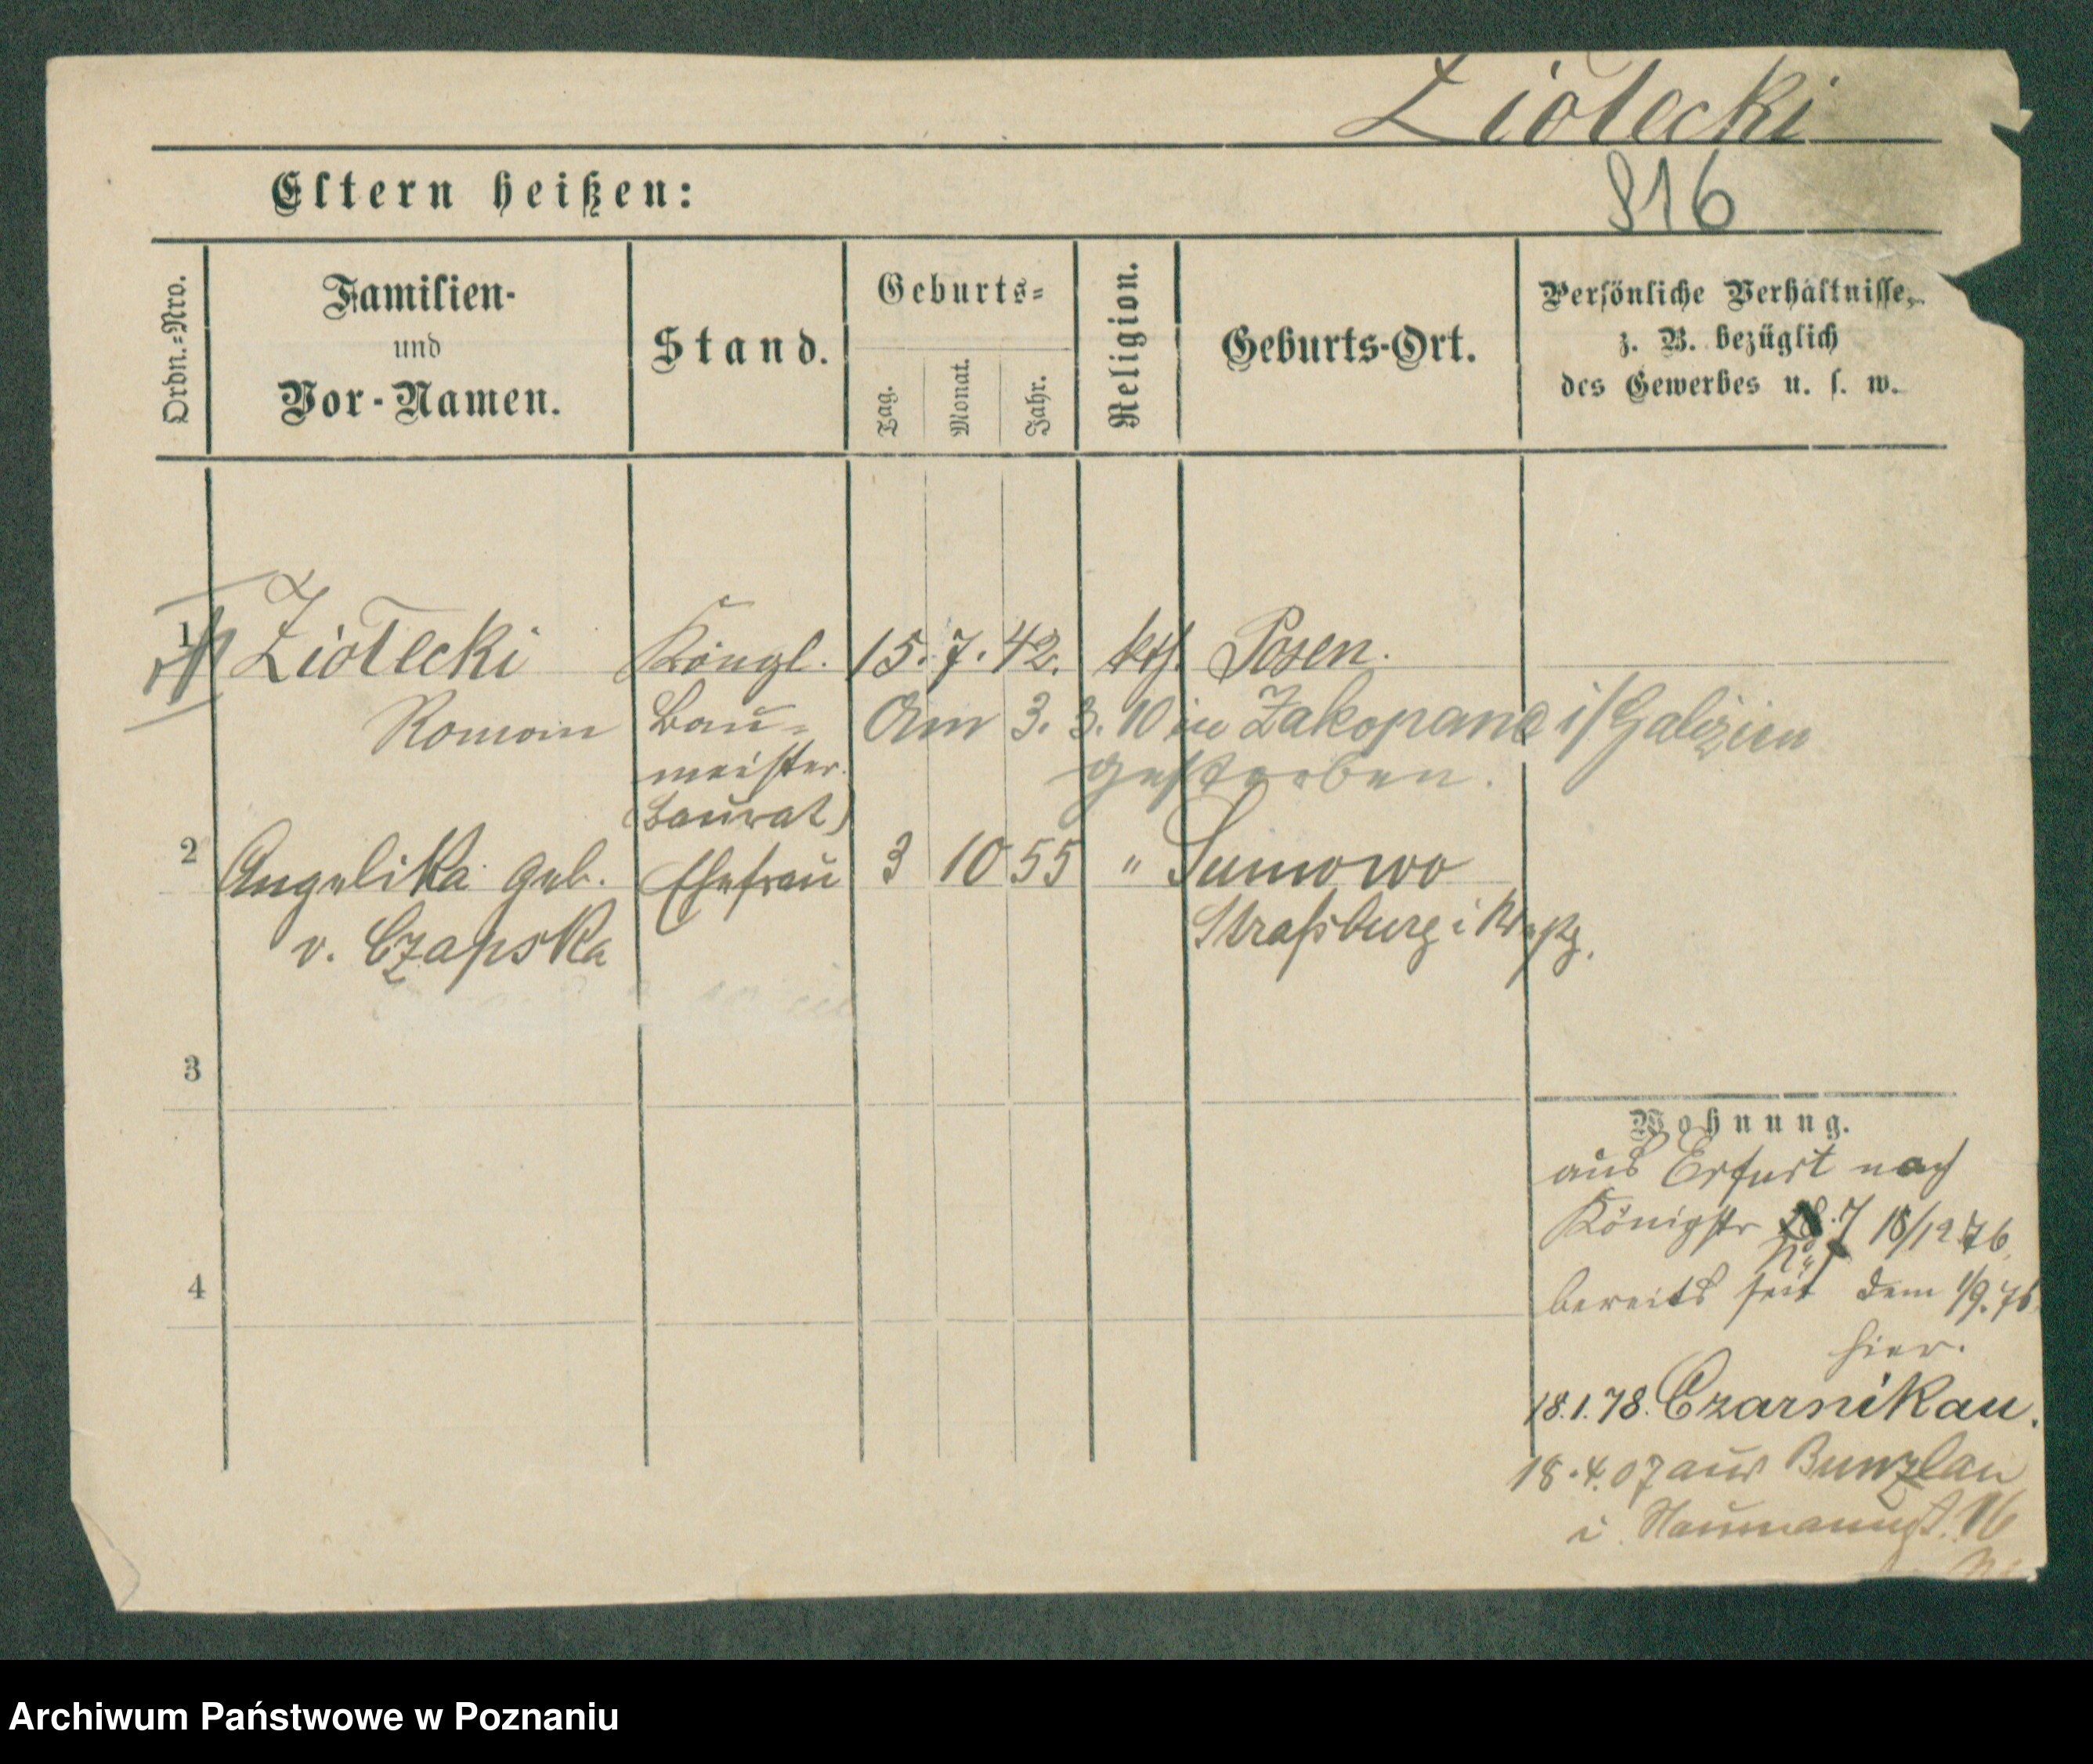 Ziołecki
816
Eltern heißen:
Ordn.-Nro.
Familien-
und
Vor-Namen.
Stand.
Geburts-
Tag.
Monat.
Jahr.
Religion.
Geburts-Ort.
Persönliche Verhältnisse,
z. B. bezüglich
des Gewerbes u. s. w.
1 Ziołecki Köngl. 15. 7. 42. kth. Posen.
Roman Bau-
meister
(Baurat)
Am 3. 3. 10 in Zakopane i/Galizien
gestorben.
2 Angelika geb. Ehefrau 3 10 55 " Sumowo
v. Czapska
Strassburg i Wpr.
3
4
Wohnung.
aus Erfurt nach
Königstr 7 18/12 76.
bereits seit dem 1/9. 76
hier.
18.1.78. Czarnikau.
18.4.07 aus Bunzlau
i Naumannst. 16
Archiwum Państwowe w Poznaniu